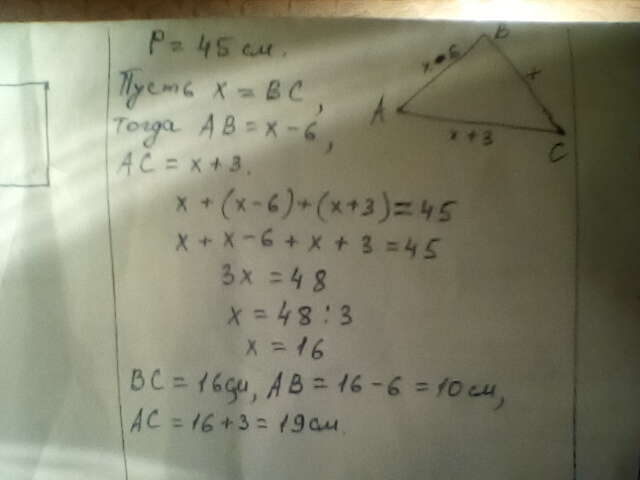 P = 45 см.
Пусть x = BC,
тогда AB = x - 6,
AC = x + 3.
x + (x-6) + (x+3) = 45
x + x - 6 + x + 3 = 45
3x = 48
x = 48 : 3
x = 16
BC = 16см, AB = 16 - 6 = 10см,
AC = 16 + 3 = 19см.
B
x - 6
x
A
x + 3
C